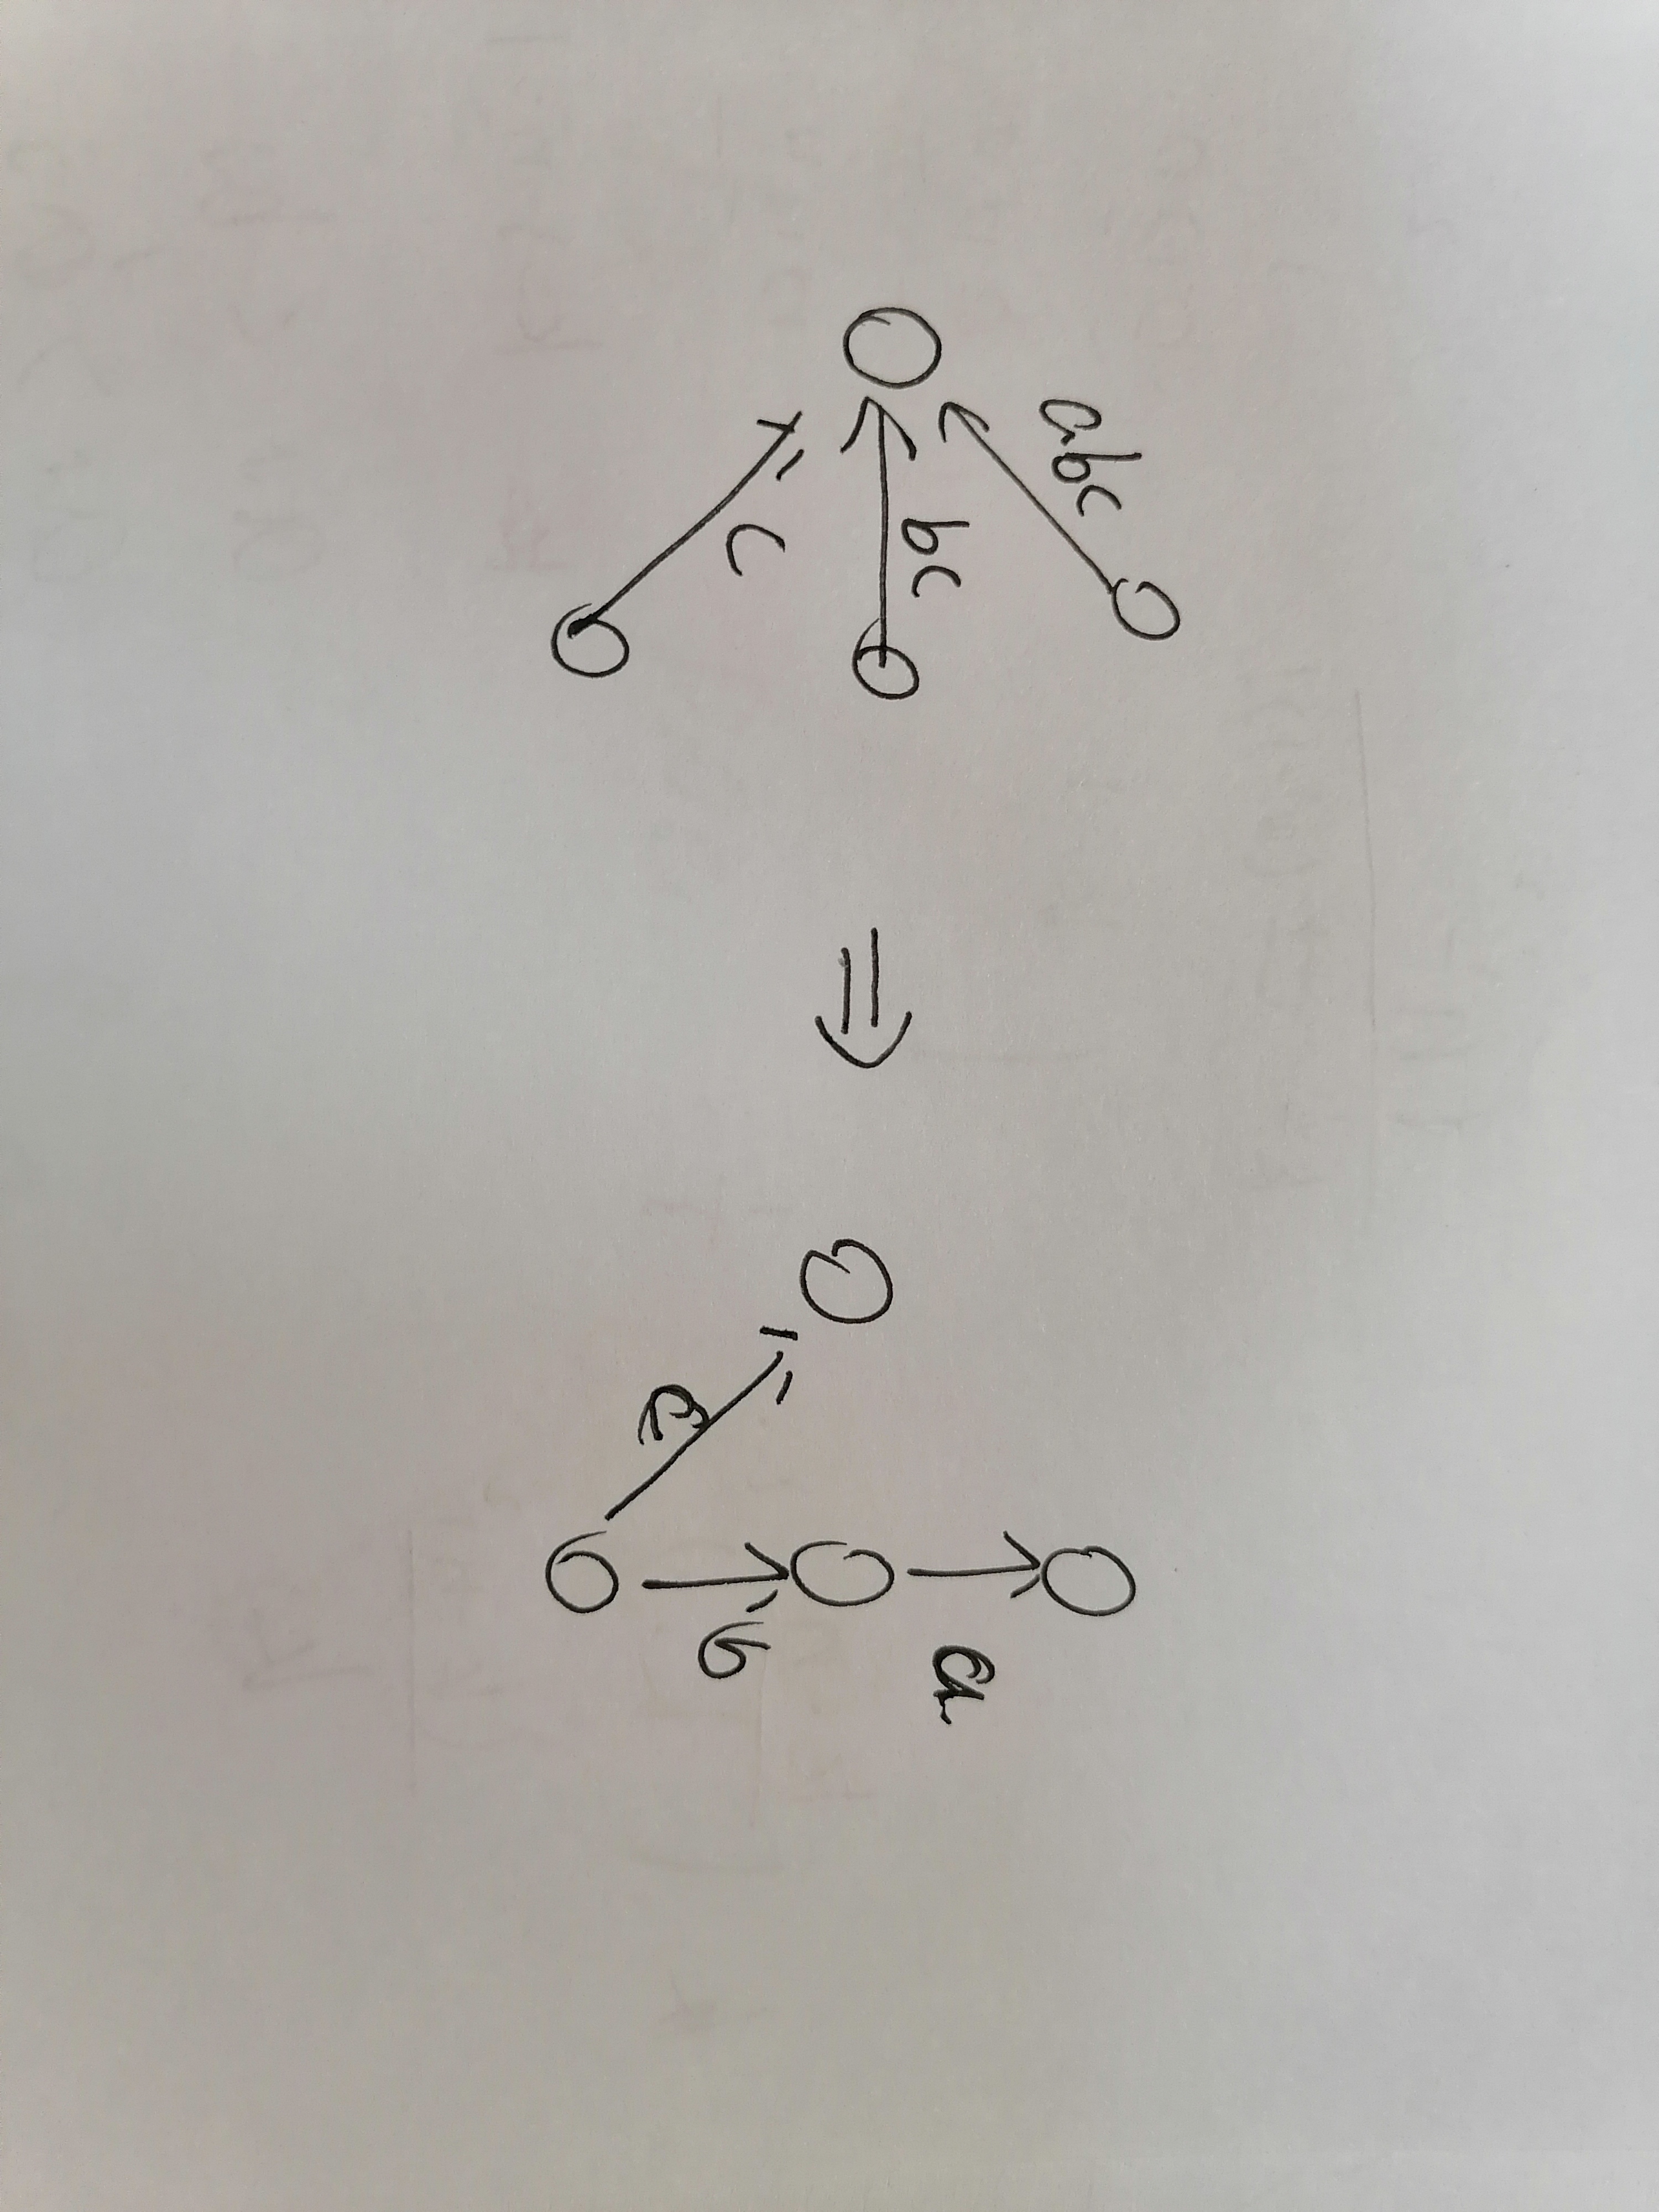 abc
bc
c
⇒
a
b
c